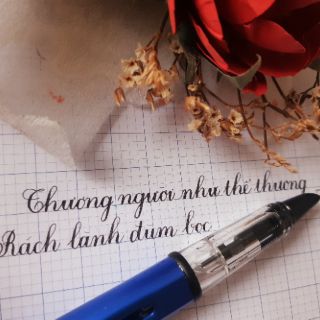 Thương người như thể thương
Rách lành đùm bọc